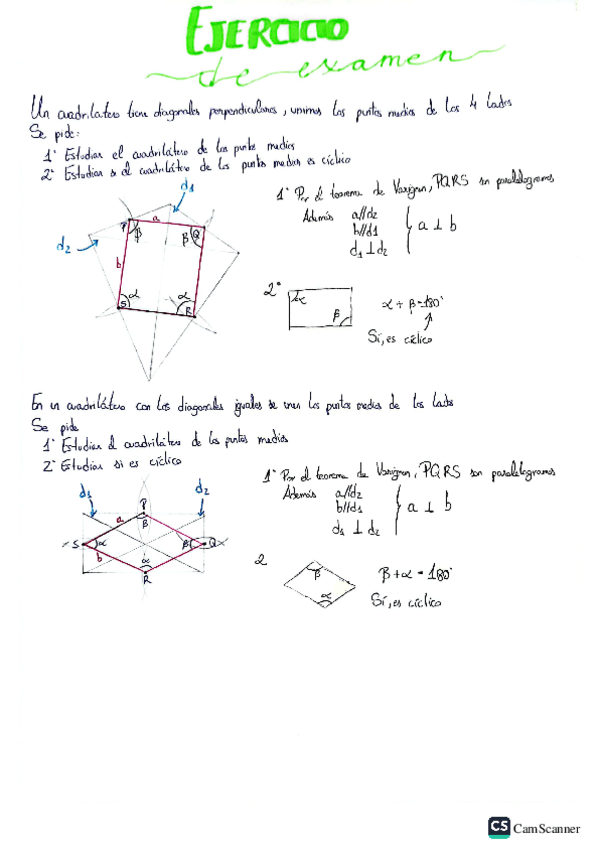 EJERCICIO
de examen
Un cuadrilátero tiene diagonales perpendiculares, unimos los puntos medios de los 4 lados
Se pide:
1º Estudiar el cuadrilátero de los puntos medios
2º Estudiar si el cuadrilátero de los puntos medios es cíclico
d1
d2
a
b
P
Q
S
R
β
β
α
α
1º Por el teorema de Varignon, PQRS son paralelogramos
Además a//d2
b//d1
d1 ⊥ d2
a ⊥ b
2º
α
β
α + β = 180º
Sí, es cíclico
En un cuadrilátero con las diagonales iguales se unen los puntos medios de los lados
Se pide
1º Estudiar el cuadrilátero de los puntos medios
2º Estudiar si es cíclico
d1
d2
P
a
β
S
α
β
Q
b
α
R
1º Por el teorema de Varignon, PQRS son paralelogramos
Además a//d2
b//d1
d1 ⊥ d2
a ⊥ b
2
β
α
β + α = 180º
Sí, es cíclico
CS CamScanner